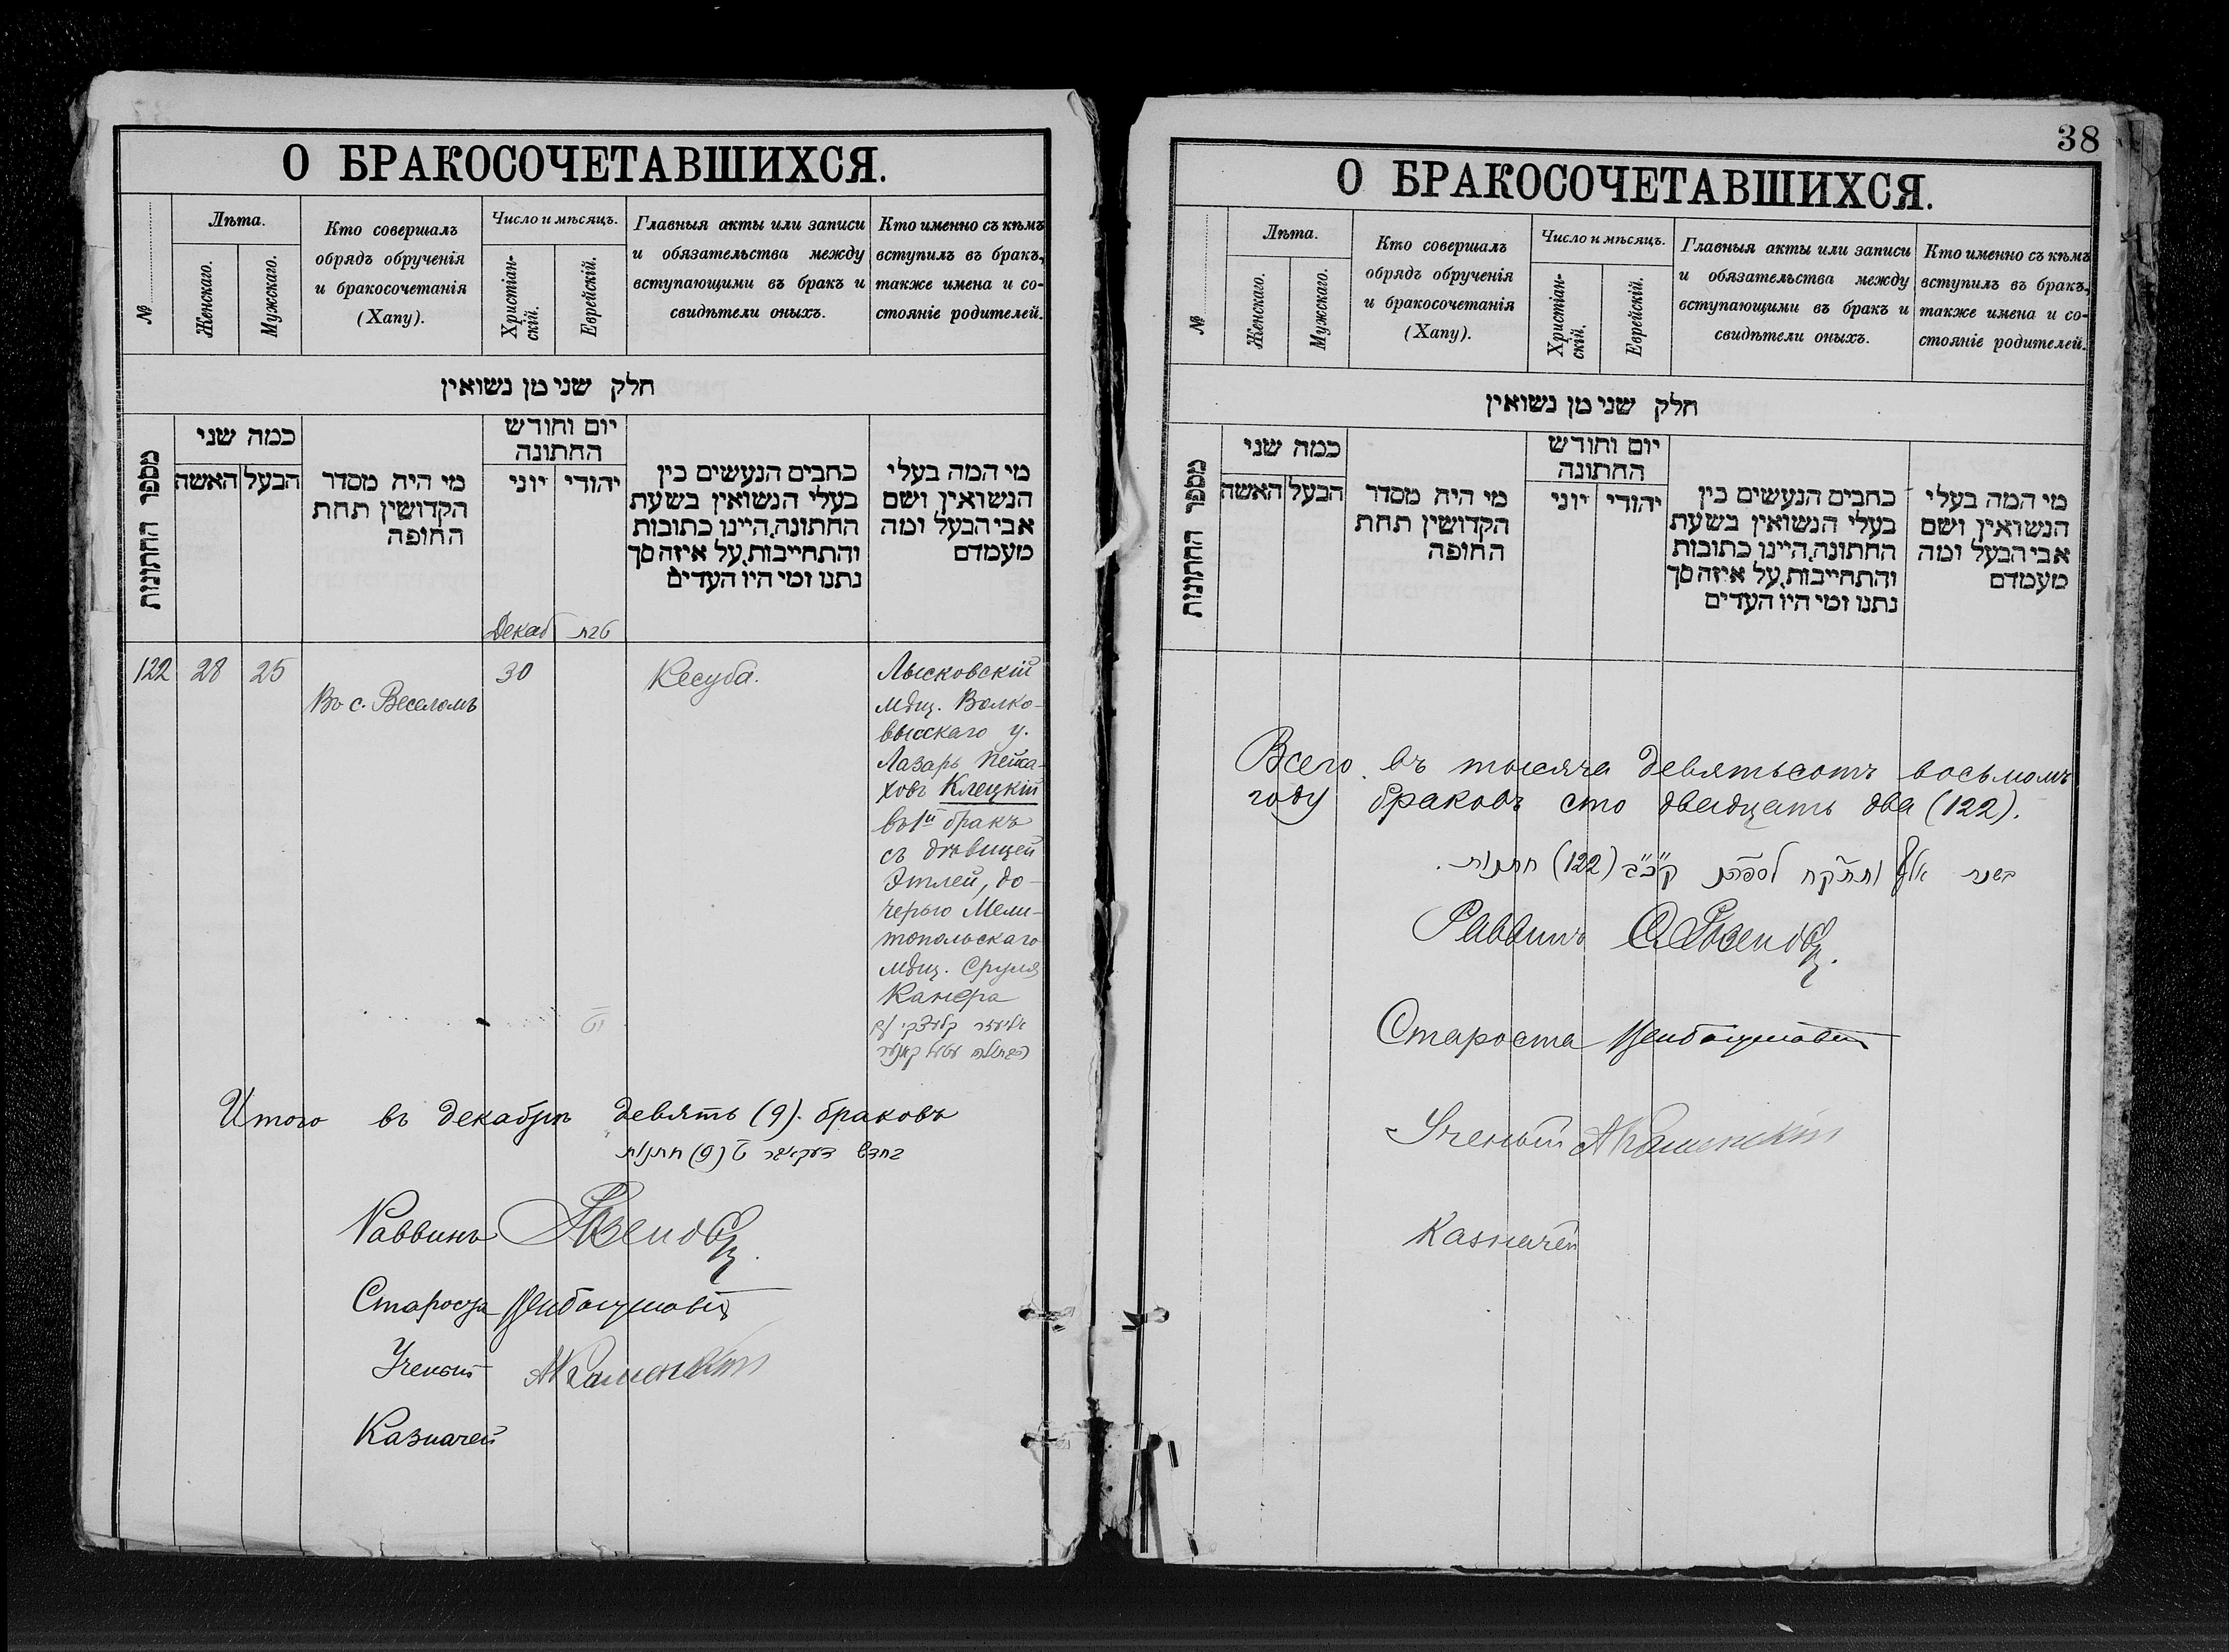 О БРАКОСОЧЕТАВШИХСЯ.
№
Лѣта.
Женскаго.
Мужскаго.
Кто совершалъ
обрядъ обрученія
и бракосочетанія
(Хапу).
Число и мѣсяцъ.
Христіан-
скій.
Еврейскій.
Главныя акты или записи
и обязательства между
вступающими въ бракъ и
свидѣтели оныхъ.
Кто именно съ кѣмъ
вступилъ въ бракъ,
также имена и со-
стояніе родителей.
חלק שני מן נשואין
מספר החתונות
כמה שני
האשה
הבעל
מי היה מסדר
הקדושין תחת
החופה
יום וחודש
החתונה
יוני
יהודי
כתבים הנעשים בין
בעלי הנשואין בשעת
החתונה, היינו כתובות
והתחייבות, על איזה סך
נתנו ומי היו העדים
מי המה בעלי
הנשואין ושם
אבי הבעל ומה
מעמדם
Декаб
טבת
122
28
25
Въ с. Веселомъ
30
Кесуба.
Лысковскій
мѣщ. Волко-
высскаго у.
Лазарь Пейса-
ховъ Клецкій
въ 1й бракъ
съ дѣвицей
Этлей, до-
черью Мели-
топольскаго
мѣщ. Сруля
Канера
אליעזר קלעצקי עם
הבתולה עטל קאנער
Итого въ декабрѣ девять (9). браковъ
בחדש דעקאבר ט (9) חתונות
Раввинъ
Староста
Ученый
Казначей
38
О БРАКОСОЧЕТАВШИХСЯ.
№
Лѣта.
Женскаго.
Мужскаго.
Кто совершалъ
обрядъ обрученія
и бракосочетанія
(Хапу).
Число и мѣсяцъ.
Христіан-
скій.
Еврейскій.
Главныя акты или записи
и обязательства между
вступающими въ бракъ и
свидѣтели оныхъ.
Кто именно съ кѣмъ
вступилъ въ бракъ,
также имена и со-
стояніе родителей.
חלק שני מן נשואין
מספר החתונות
כמה שני
האשה
הבעל
מי היה מסדר
הקדושין תחת
החופה
יום וחודש
החתונה
יוני
יהודי
כתבים הנעשים בין
בעלי הנשואין בשעת
החתונה, היינו כתובות
והתחייבות, על איזה סך
נתנו ומי היו העדים
מי המה בעלי
הנשואין ושם
אבי הבעל ומה
מעמדם
Всего въ тысяча девятьсотъ восьмомъ
году браковъ сто двадцать два (122).
בשנת אלף ותתקח למספרם קכ״ב (122) חתונות.
Раввинъ
Староста
Ученый
Казначей